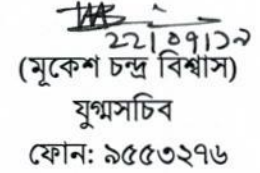 ২২।০৭।১৯
(মূকেশ চন্দ্র বিশ্বাস)
যুগ্মসচিব
ফোন: ৯৫৫৩২৭৬